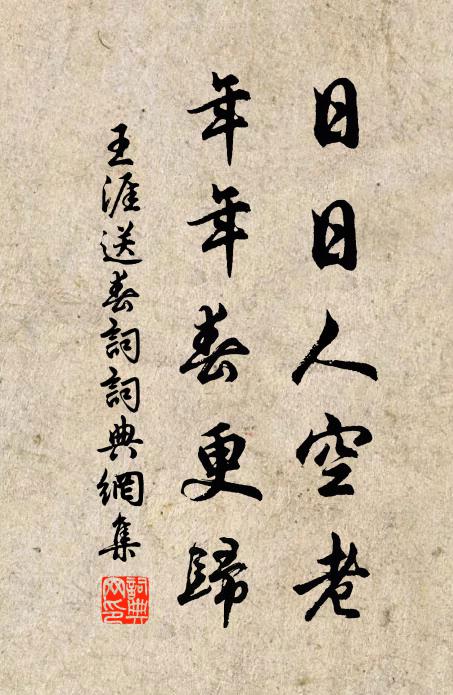 日日人空老
年年春更歸
王涯送春詞詞典網集
詞典網印